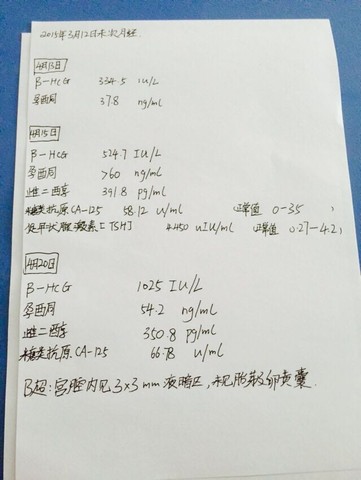 2015年3月12日末次月经.
4月13日
β-HCG 334.5 IU/L
孕酮 37.8 ng/ml
4月15日
β-HCG 524.7 IU/L
孕酮 >60 ng/ml
雌二醇 391.8 pg/ml
糖类抗原CA-125 58.12 U/ml 峰值 0-35;
促甲状腺激素[TSH] 4.450 uIU/ml 峰值 0.27-4.2;
4月20日
β-HCG 1025 IU/L
孕酮 54.2 ng/ml
雌二醇 350.8 pg/ml
糖类抗原CA-125 66.78 U/ml
B超:宫腔内见3×3mm液暗区,未见胎芽及卵黄囊.